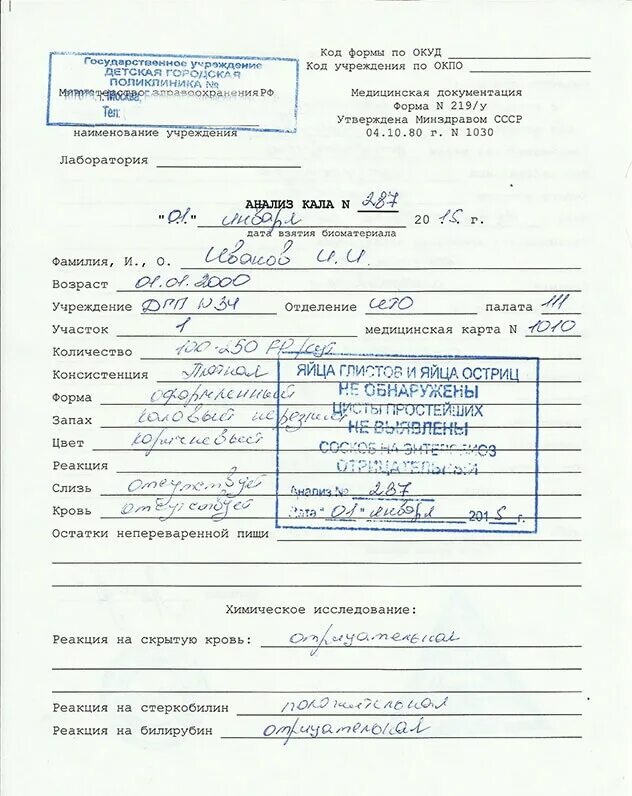 Код формы по ОКУД
Код учреждения по ОКПО
Государственное учреждение
ДЕТСКАЯ ГОРОДСКАЯ
ПОЛИКЛИНИКА №
Министерство здравоохранения РФ
г. Москва,
Тел:
наименование учреждения
Медицинская документация
Форма N 219/у
Утверждена Минздравом СССР
04.10.80 г. N 1030
Лаборатория
АНАЛИЗ КАЛА N 287
"01" января 2015 г.
дата взятия биоматериала
Фамилия, И., О. Иванов И. И.
Возраст 01.01.2000
Учреждение ДГП N 34 Отделение ЦТО палата 111
Участок 1 медицинская карта N 1010
Количество 100-250 гр/сут
Консистенция Плотная
Форма оформленный
Запах каловый нерезкий
Цвет коричневый
Реакция
Слизь отсутствует
Кровь отсутствует
Остатки непереваренной пищи
ЯЙЦА ГЛИСТОВ И ЯЙЦА ОСТРИЦ
НЕ ОБНАРУЖЕНЫ
ЦИСТЫ ПРОСТЕЙШИХ
НЕ ВЫЯВЛЕНЫ
СОСКОБ НА ЭНТЕРОБИОЗ
ОТРИЦАТЕЛЬНЫЙ
Анализ № 287
Дата "01" января 2015 г.
Химическое исследование:
Реакция на скрытую кровь: отрицательная
Реакция на стеркобилин положительная
Реакция на билирубин отрицательная